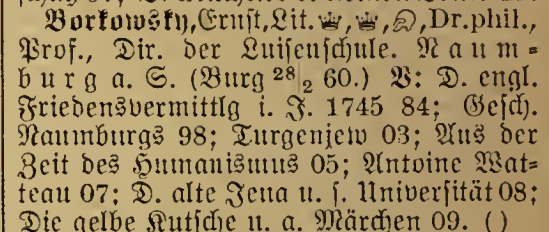 Borkowsky, Ernst, Lit. , , , Dr. phil.,
Prof., Dir. der Luisenschule. Naum=
burg a. S. (Burg 28/2 60.) V: D. engl.
Friedensvermittlg i. J. 1745 84; Gesch.
Naumburgs 98; Turgenjew 03; Aus der
Zeit des Humanismus 05; Antoine Wat=
teau 07; D. alte Jena u. s. Universität 08;
Die gelbe Kutsche u. a. Märchen 09. ()